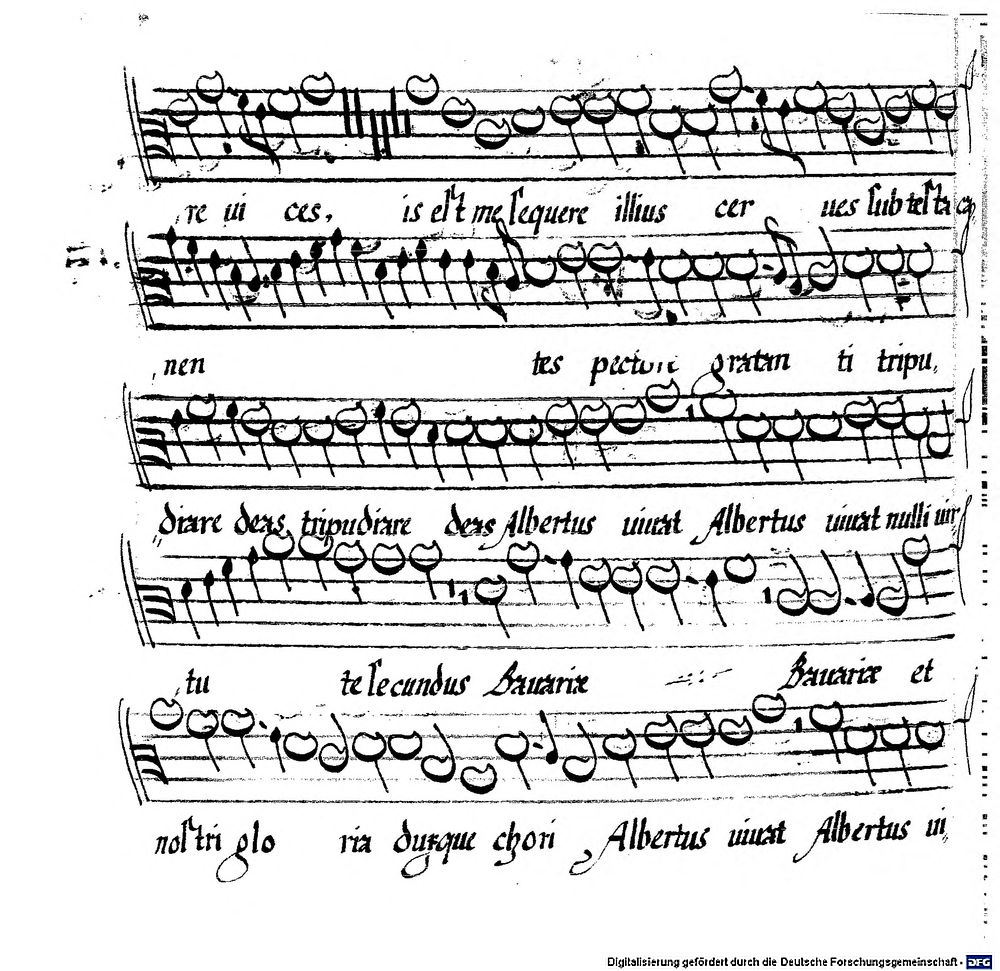 re ui ces, is est me sequere illius cer ues sub testa ca
nen tes pectore gratan ti tripu,
diare deas tripudiare deas Albertus uiuat Albertus uiuat nulli uir
tu te secundus Bauariæ Bauariæ et
nostri glo ria duxque chori Albertus uiuat Albertus ui,
Digitalisierung gefördert durch die Deutsche Forschungsgemeinschaft - DFG